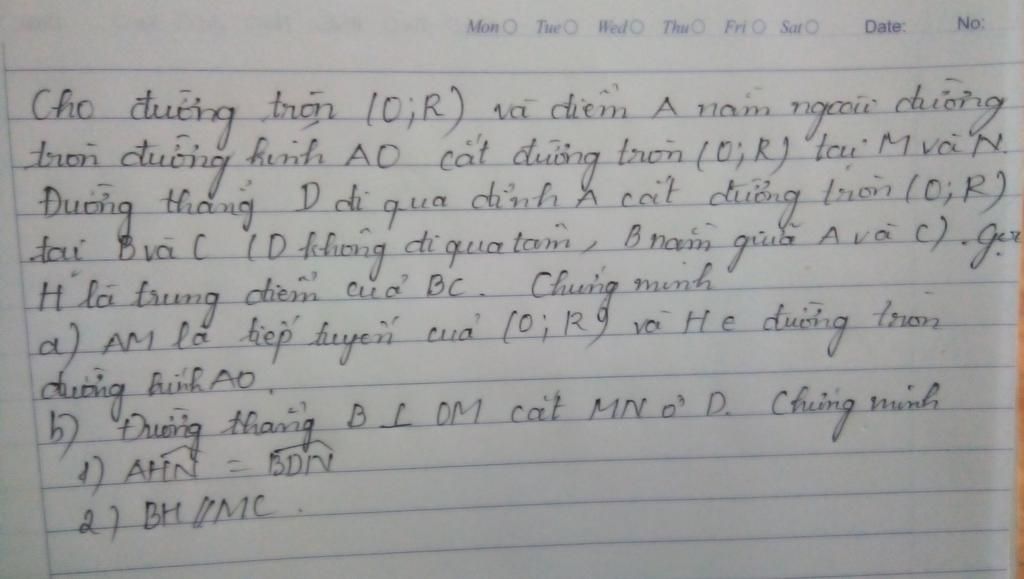 Mon Tue Wed Thu Fri Sat Date: No:
Cho đường tròn (O;R) và điểm A nằm ngoài đường
tròn đường kính AO cắt đường tròn (O;R) tại M và N.
Đường thẳng D đi qua đỉnh A cắt đường tròn (O;R)
tại B và C (D không đi qua tâm, B nằm giữa A và C). Gọi
H là trung điểm của BC. Chứng minh
a) AM là tiếp tuyến của (O;R) và H ∈ đường tròn
đường kính AO.
b) Đường thẳng B ⊥ OM cắt MN ở D. Chứng minh
1) AHN = BDN
2) BH // MC.